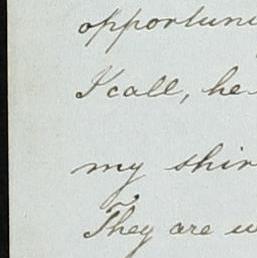 opportuni
I call, he
my shir
They are w